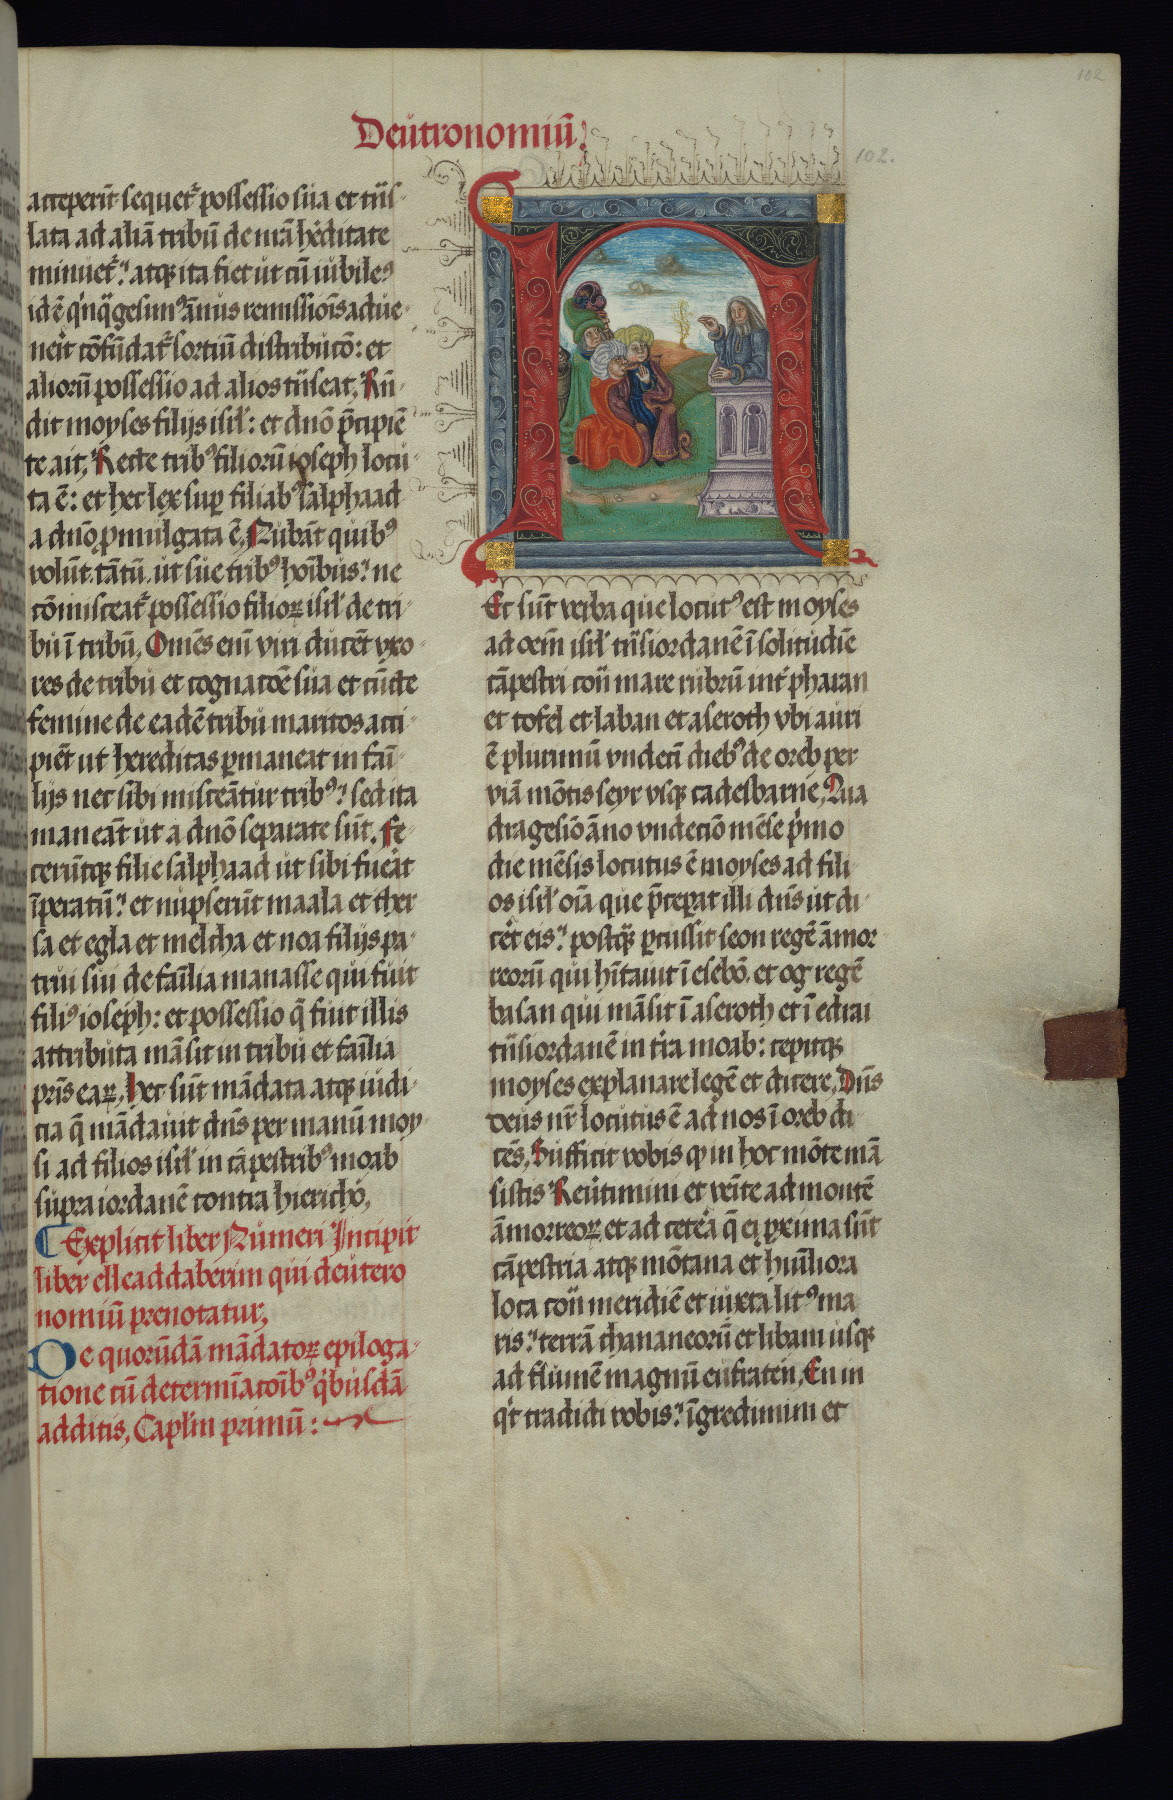 102
Deutronomiū.
102.
acceperīt sequet᷑ possessio sua et trās-
lata ad aliā tribū de nr̄a hēditate
minuet᷑: atqꝫ ita fiet ut cū iubileꝰ
id ē qͥnqͣgesimꝰ ānus remissiōis adue-
neīt cōfūdat᷑ sortiū distributō: et
alioru̅ possessio ad alios trāseat, Rn̄-
dit moyses filijs isrl̄: et dn̄o p̄cipiē
te ait, Recte tribꝰ filiorū ioseph locu
ta ē: et hec lex sup filiabꝰ salphaad
a dn̄o promulgata ē, Nubāt quibꝰ
volūt, tātū ut sue tribꝰ hoībus: ne
cōmisceat᷑ possessio filioꝝ isrl̄ de tri-
bu ī tribū, Omēs enī viri ducēt vxo-
res de tribu et cognatōe sua et cūcte
femine de eadē tribu maritos acci-
piēt ut hereditas permaneat in famī-
lijs nec sibi misceātur tribꝰ: sed ita
maneāt ut a dn̄o separate sūt. Fe-
ceruntqꝫ filie salphaad ut sibi fuēat
īperatū: et nupserūt maala et ther
sa et egla et melcha et noa filijs pa-
trui sui de famīlia manasse qui fuit
filiꝰ ioseph: et possessio q̄ fuit illis
attributa māsit in tribu et famīlia
pr̄is eaꝝ, Hec sūt mādata atqꝫ iudi-
cia q̄ mādauit dn̄s per manū moy-
si ad filios isrl̄ in cāpestribꝰ moab
supra iordanē contra hierichō,
Explicit liber Numeri Incipit
liber elleaddaberim qui deutero
nomiū prenotatur,
De quorūdā mādatoꝝ epiloga-
tione cū determīatoībꝰ qͥbusdā
additis, Caplm̄ primū:
Et sūt verba que locutꝰ est moyses
ad oēm isrl̄ trās iordanē ī solitudīe
cāpestri cōtͣ mare rubrū int᷑ pharan
et tofel et laban et aseroth vbi auri
ē plurimū vndecī diebꝰ de oreb per
viā mōtis seyr vsqꝫ cadesbarne, Qua
dragesīo āno vndecīo mēse pͥmo
die mēsis locutus ē moyses ad fili
os isrl̄ oīa que p̄ceperat illi dn̄s ut di-
cēt eis: postqͣꝫ percussit seon regē āmor
reorū qui hītauit ī esebō, et og regē
basan qui māsit ī aseroth et ī edrai
trās iordanē in tr̄ra moab: cepitqꝫ
moyses explanare legē et dicere, Dn̄s
deus nr̄ locutus ē ad nos ī oreb di
cēs, Sufficit vobis qp in hoc mōte mā
sistis Reūtimini et venīte ad montē
āmorreoꝝ et ad cetēa q̄ ei ꝓxima sūt
cāpestria atqꝫ mōtana et humīliora
loca cōtͣ meridiē et iuxta litꝰ ma
ris: terrā chananeorū et libani usqꝫ
ad flumē magnū eufraten, En in
qͥt tradidi vobis: īgredimini et